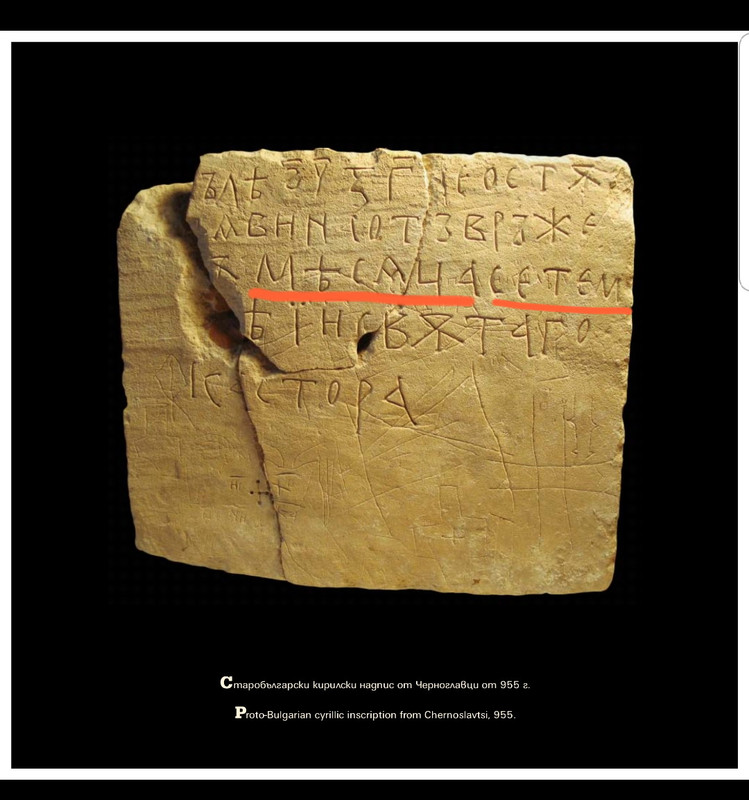 ЪЛѢ ЗУ҃ ѮГ҃ НЕОСТѪ
ѪВНИ ІОТЗВРЗЖЕ
МѢСѦЦАСЕТЕМ
Ѣ ЇНСВѪТАГО
НЕСТОРА
Старобългарски кирилски надпис от Черноглавци от 955 г.
Proto-Bulgarian cyrillic inscription from Chernoslavtsi, 955.